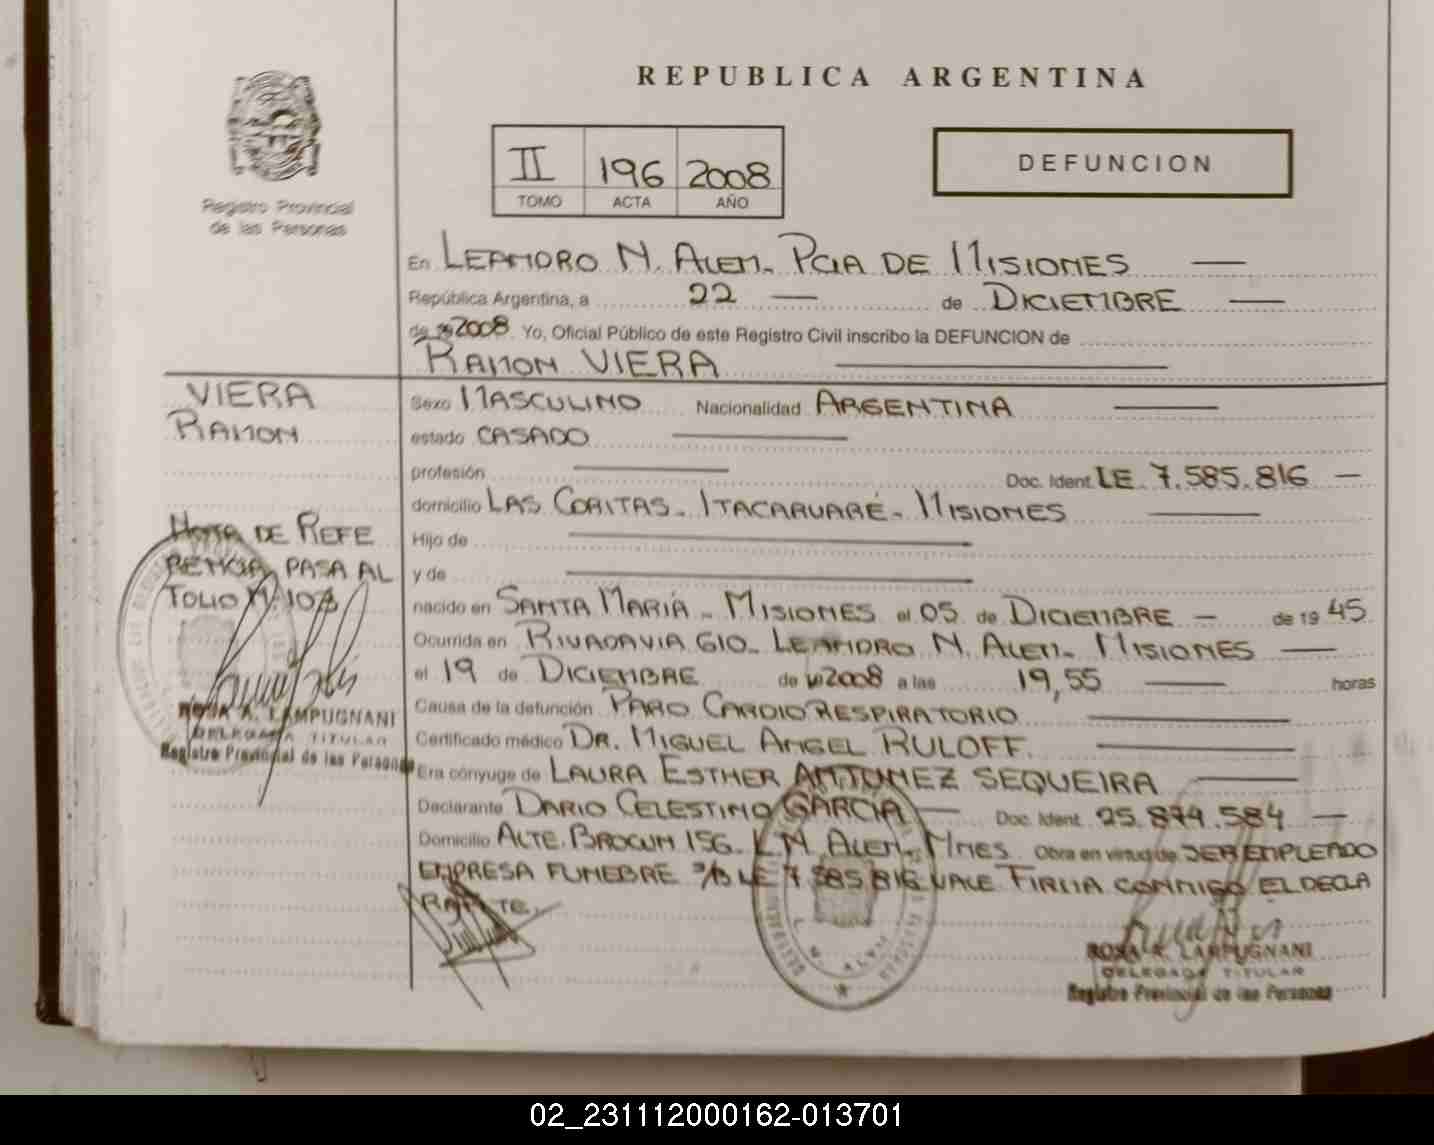 REPUBLICA ARGENTINA
II 196 2008
TOMO ACTA AÑO
DEFUNCION
Registro Provincial
de las Personas
En LEANDRO N. ALEM - PCIA DE MISIONES
República Argentina, a 22 de DICIEMBRE
de 2008 Yo, Oficial Público de este Registro Civil inscribo la DEFUNCION de
RAMON VIERA
VIERA
RAMON
Sexo MASCULINO Nacionalidad ARGENTINA
estado CASADO
profesión Doc. Ident. LE 7.585.816
domicilio LAS CORITAS - ITACARUARÉ - MISIONES
Hijo de
y de
NOTA DE REFE
RENCIA PASA AL
FOLIO N. 103
ROSA A. LAMPUGNANI
DELEGADA TITULAR
Registro Provincial de las Personas
nacido en SANTA MARÍA - MISIONES el 05 de DICIEMBRE de 19 45
Ocurrida en RIVADAVIA 610 - LEANDRO N. ALEM - MISIONES
el 19 de DICIEMBRE de 2008 a las 19,55 horas
Causa de la defunción PARO CARDIO RESPIRATORIO
Certificado médico DR. MIGUEL ANGEL RULOFF.
Era cónyuge de LAURA ESTHER ANTUNEZ SEQUEIRA
Declarante DARIO CELESTINO GARCIA Doc. Ident. 25.874.584
Domicilio ALTE. BROWN 156 - L N ALEM - MNES Obra en virtud de SER EMPLEADO
EMPRESA FUNEBRE S/B LE 7585816 VALE FIRMA CONMIGO EL DECLA
RANTE.
L. N. ALEM
ROSA A. LAMPUGNANI
DELEGADA TITULAR
Registro Provincial de las Personas
02_231112000162-013701